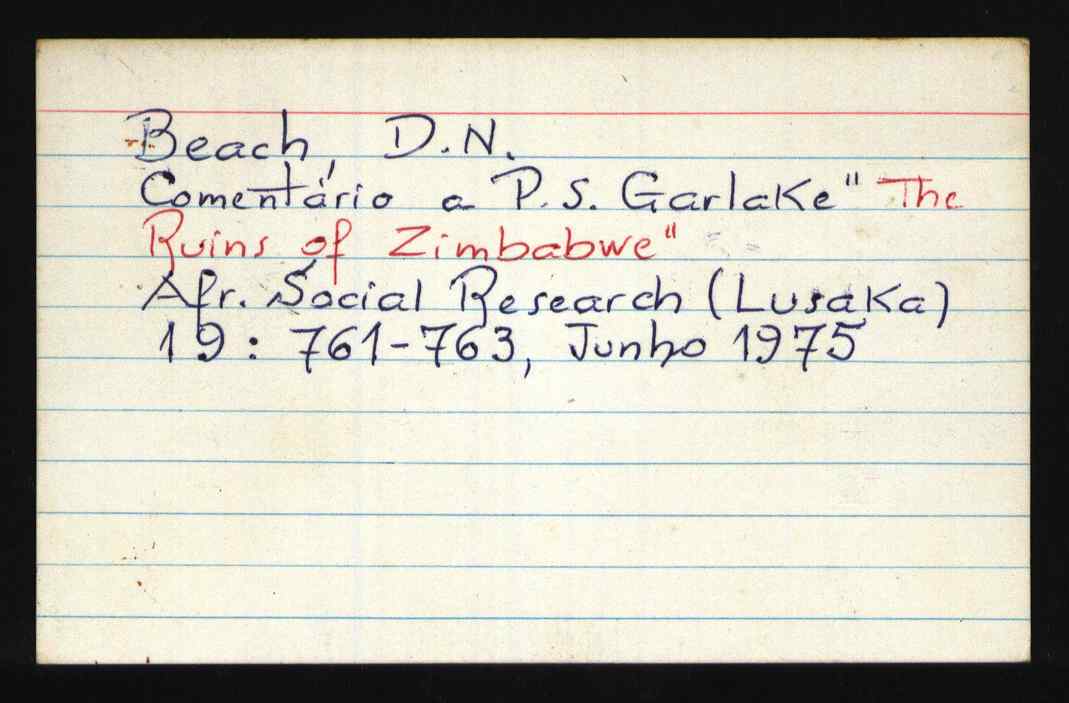 Beach, D.N.
Comentário a P.S. Garlake" The
Ruins of Zimbabwe"
Afr. Social Research (Lusaka)
19: 761-763, Junho 1975